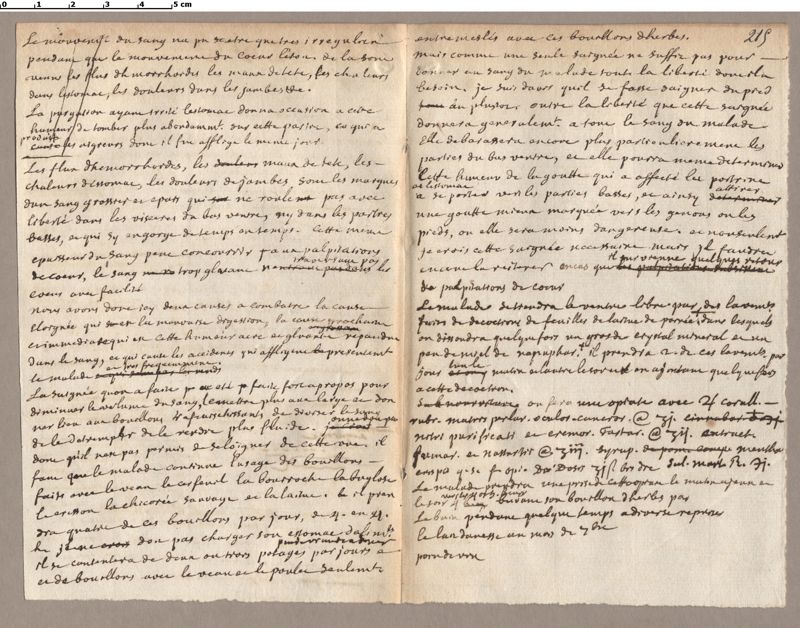 0 1 2 3 4 5 cm
Le mouvement du sang na pu se etre que tres irregulier
pendant que le mouvement du coeur l'etoit. de la sont
venus les flus dhemorrhordes les maux de tete, les chaleurs
dans lestomac, les douleurs dans les jambes &c.
La purgation ayant irrité lestomac donna occasion a cette
humeur de tomber plus abondamt. sur cette partie, ce qui a
produit
les aigreurs dont il fut affligé le meme jour.
Les flux dhemorrhordes, les maux de tete, les
chaleurs destomac, les douleurs de jambes sont les marques
dun sang grossier et epais qui ne roule pas avec
liberté dans les visceres du bas ventre, ny dans les parties
basses, et qui sy engorge de temps en temps. Cette meme
epaisseur du sang peut concourrir a palpitations
de coeur, le sang trop gluant ne traversant pas le
coeur avec facilité
nous avons donc icy deux causes a combatre la cause
eloignée qui est la mauvaise digestion, la cause prochaine
et immediate qui est cette humeur acre et gluante repandue
dans le sang, et qui cause les accidents qui affligent presentement
le malade
et tres frequemment
La saignée quon a faite a eté faite fort a propos pour
diminuer le volume du sang, le mettre plus au large et donner
lieu aux bouillons rafraichissants de diviser le sang
de le detremper de le rendre plus fluide.
donc quil nest pas permis de seloigner de cette vue, il
faut que le malade continue lusage des bouillons
faits avec le veau le cerfeuil la bourroche la buglose
le cresson la chicorée sauvage et la laitue. il prendra
quatre de ces bouillons par jour, de 4. en 4.
h. et pour ne pas charger son estomac dalimts.
il se contentera de deux ou trois potages par jours
et de bouillons avec le veau et le poulet seulemt
215
entremeslés avec ces bouillons dherbes.
mais comme une seule saignée ne suffit pas pour
donner au sang du malade toute la liberté dont il a
besoin, je suis davis quil se fasse saigner du pied
au plustot, outre la liberté que cette saignée
donnera generalemt. a tout le sang du malade
Elle debarassera encore plus particulierement les
parties du bas ventre, et elle pourra meme determiner
cette humeur de la goutte qui a affecté la poitrine
et lestomac
a se porter vers les parties basses, et ainsy attirer
une goutte mieux marquée vers les genoux ou les
pieds, ou elle sera moins dangereuse. et non seulement
je crois cette saignée necessaire mais il faudra
encore la reiterer en cas quil survienne quelques retours
de palpitations de coeur
Le malade se tiendra le ventre libre par des lavemts
faits de decoctions de feuilles de laitue de poirée, dans lesquels
on dissoudra quelquefois un gros de crystal mineral et un
peu de miel de nenuphar. il prendra 2. de ces lavemts. par
jour lun le matin et lautre le soir et en ajoutant quelquefois
a cette decoction.
on fera une opiate avec 2ʒ corall.
rubr. matris perlar. oculor. cancror. @ ʒj.
nitri purificati et cremor. tartar. @ ʒij. extract.
fumar. et nasturtii @ ʒiij. syrup. menthae
et rosa q. s. f. opi. Dr. Dosis ʒjß
Le malade prendra une prise de cette opiate le matin a jeun et
le soir
buvant son bouillon dherbes par
Le bain pendant quelque temps a diverse reprises
le lait danesse au mois de 7bre